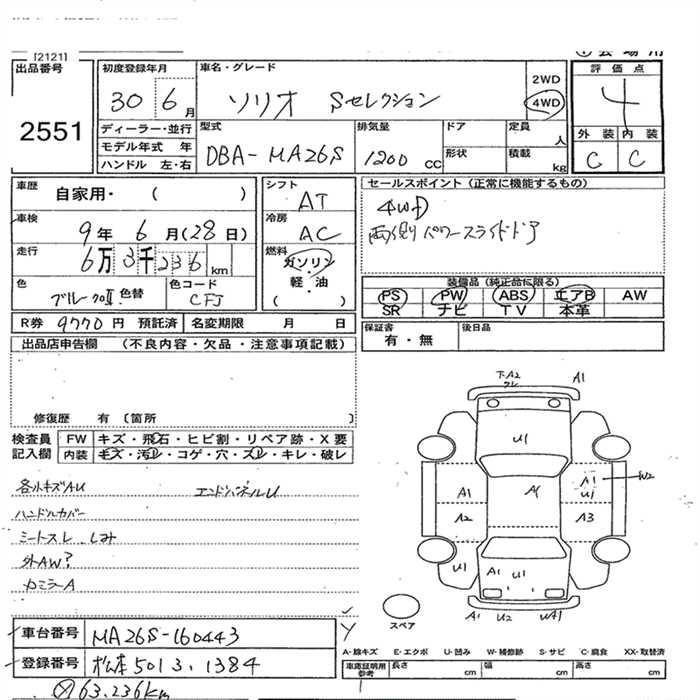 [2121]
出品番号
2551
初度登録年月
30 6月
車名・グレード
ソリオ Sセレクション
2WD
4WD
評価点
4
外装 内装
C C
ディーラー・並行
モデル年式 年
ハンドル 左・右
型式
DBA-MA26S
排気量
1200 cc
ドア
形状
定員 人
積載 kg
車歴
自家用・ ( )
車検
9年 6月(28日)
走行
6万 3千 236 km
色
色替
色コード
CFJ
シフト
AT
冷房
AC
燃料
ガソリン
軽・油
( )
セールスポイント (正常に機能するもの)
4WD
両側パワースライドドア
装備品 (純正品に限る)
PS PW ABS エアB AW
SR ナビ TV 本革
R券 9770 円 預託済 名変期限 月 日
保証書
有・無
後日品
出品店申告欄 (不良内容・欠品・注意事項記載)
修復歴 有 [箇所 ]
検査員
記入欄
FW キズ・飛石・ヒビ割・リペア跡・X要
内装 キズ・汚れ・コゲ・穴・スレ・キレ・破レ
各小キズAU エンドパネルU
ハンドルカバー
シートスレ、しみ
外AW?
カミラーA
下A2 A1
U1
A1 A2 A1 A1 U1 W2
A3
U1 A1 U1
A1 U2 UA1
スペア
車台番号 MA26S-160443
登録番号 松本 501 3.1384
63,236km
A-線キズ E-エクボ U-凹み W-補修跡 S-サビ C-腐食 XX-取替済
車庫証明用
参考
長さ cm 幅 cm 高さ cm